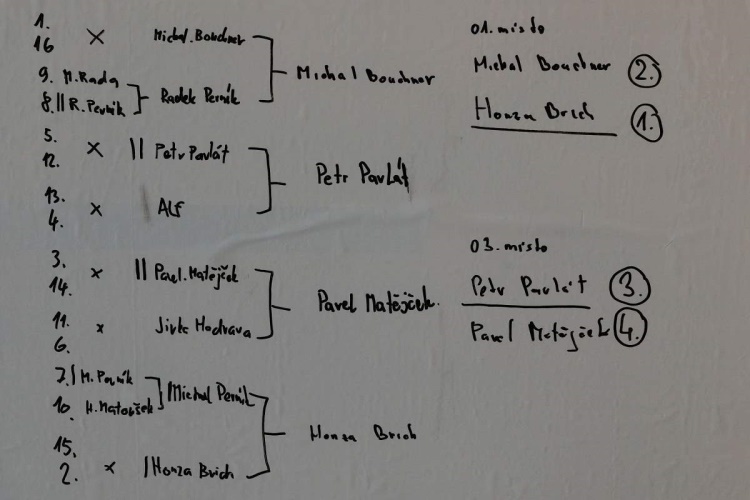 1.
16 × Michal Bouchner
Michal Bouchner
9. M. Rada
8. || R. Perník
Radek Perník
5.
12. × || Petr Pavlát
Petr Pavlát
13.
4. × Alf
3.
14. × || Pavel Matějček
Pavel Matějček
11.
6. × Jirka Hodrava
7. | M. Perník
10. H. Matoušek
| Michal Perník
Honza Brich
15.
2. × | Honza Brich
O 1. místo
Michal Bouchner 2.
Honza Brich 1.
O 3. místo
Petr Pavlát 3.
Pavel Matějček 4.